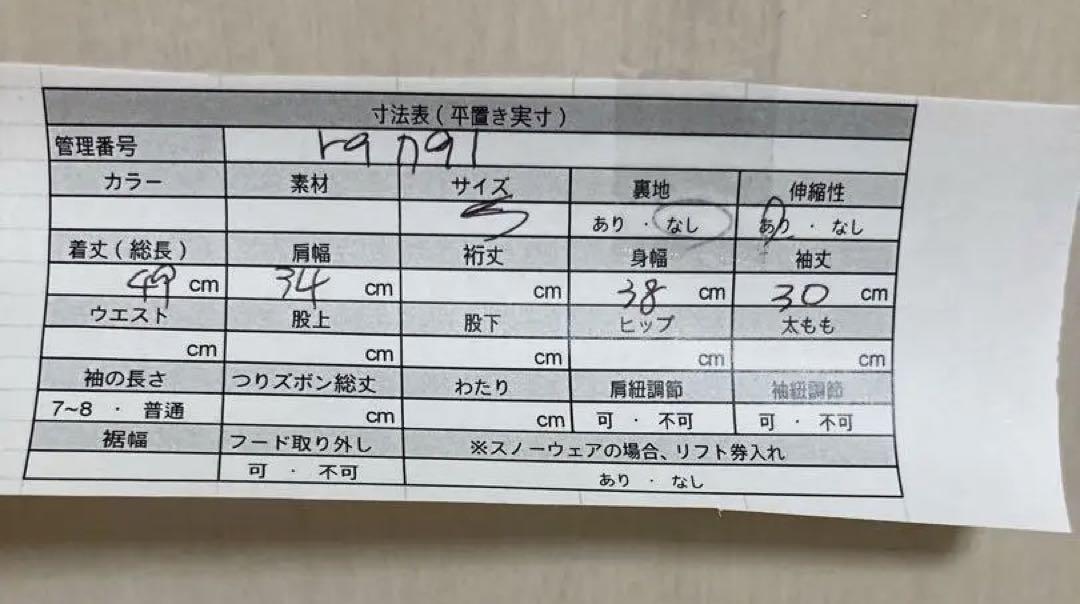 寸法表(平置き実寸)
管理番号
カラー 素材 サイズ 裏地 伸縮性
S あり ・ なし あり ・ なし
着丈(総長) 肩幅 裄丈 身幅 袖丈
49 cm 34 cm cm 38 cm 30 cm
ウエスト 股上 股下 ヒップ 太もも
cm cm cm cm cm
袖の長さ つりズボン総丈 わたり 肩紐調節 袖紐調節
7~8 ・ 普通 cm cm 可 ・ 不可 可 ・ 不可
裾幅 フード取り外し ※スノーウェアの場合、リフト券入れ
可 ・ 不可 あり ・ なし